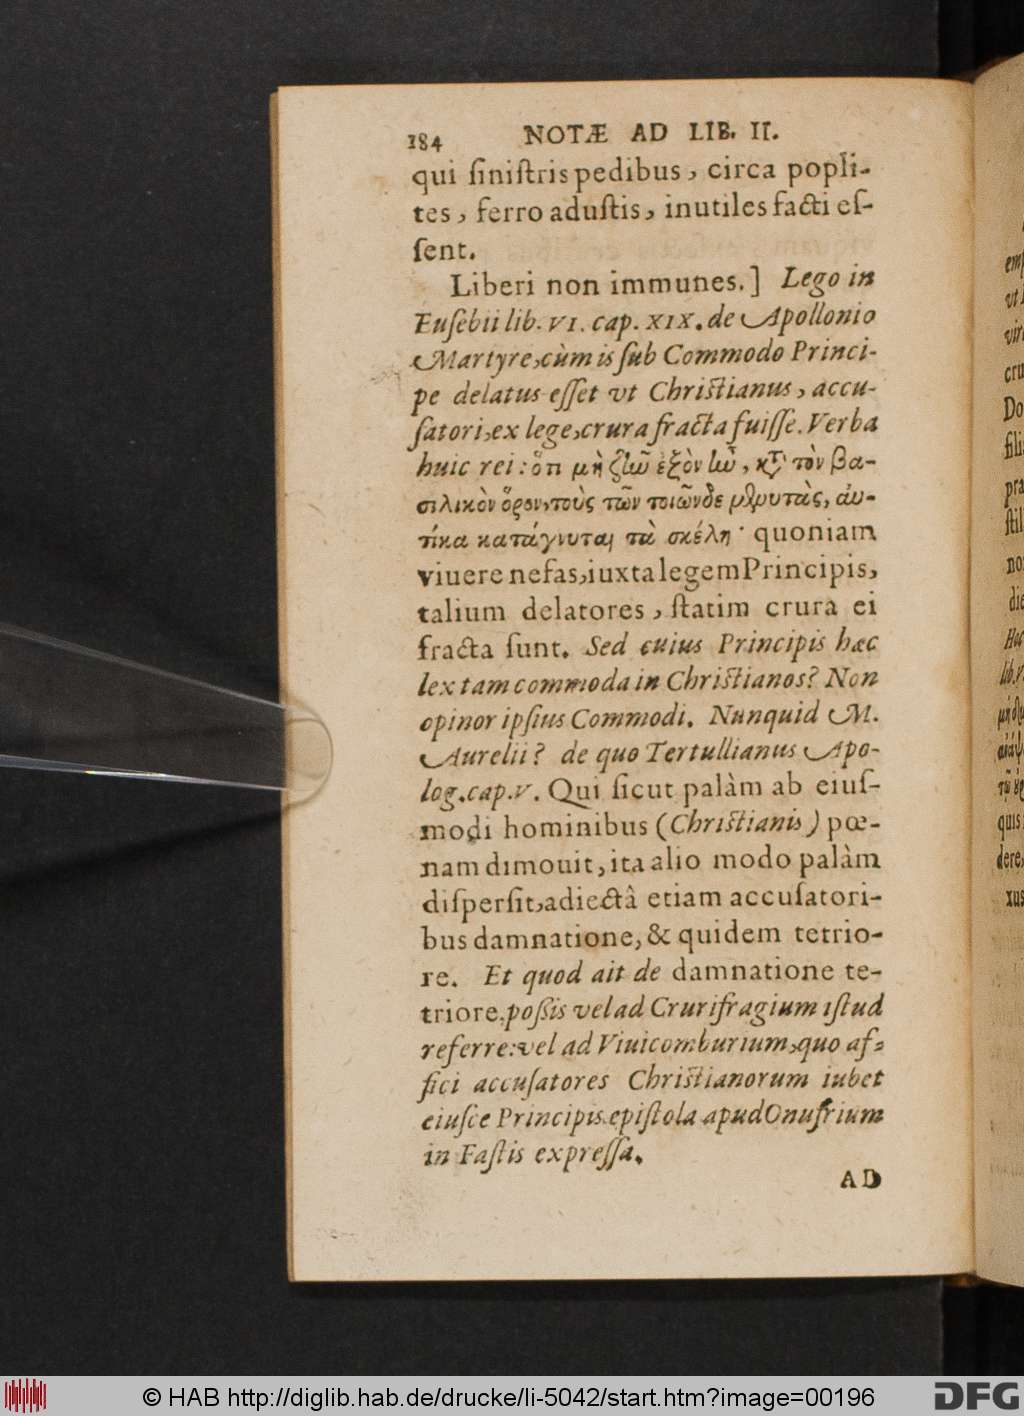 184 NOTÆ AD LIB. II.
qui ſiniſtris pedibus, circa popli-
tes, ferro aduſtis, inutiles facti eſ-
ſent.
Liberi non immunes.] Lego in
Euſebii lib. VI. cap. XIX. de Apollonio
Martyre, cùm is ſub Commodo Princi-
pe delatus eſſet vt Chriſtianus, accu-
ſatori, ex lege, crura fracta fuiſſe. Verba
huic rei: ὅτι μὴ ζῶ ἐξὸν ἦν, κτ τὸν βα-
σιλικὸν ὅρον, τοὺς τῶν τοιῶνδε μηνυτὰς, αὐ-
τίκα κατάγνυται τὰ σκέλη· quoniam
viuere nefas, iuxta legem Principis,
talium delatores, ſtatim crura ei
fracta ſunt. Sed cuius Principis hæc
lex tam commoda in Chriſtianos? Non
opinor ipſius Commodi. Nunquid M.
Aurelii? de quo Tertullianus Apo-
log. cap. V. Qui ſicut palàm ab eiuſ-
modi hominibus (Chriſtianis) pœ-
nam dimouit, ita alio modo palàm
diſperſit, adiectâ etiam accuſatori-
bus damnatione, & quidem tetrio-
re. Et quod ait de damnatione te-
triore, poßis vel ad Crurifragium iſtud
referre: vel ad Viuicomburium, quo af-
fici accuſatores Chriſtianorum iubet
eiuſce Principis epiſtola apud Onufrium
in Faſtis expreſſa.
AD
© HAB http://diglib.hab.de/drucke/li-5042/start.htm?image=00196
DFG